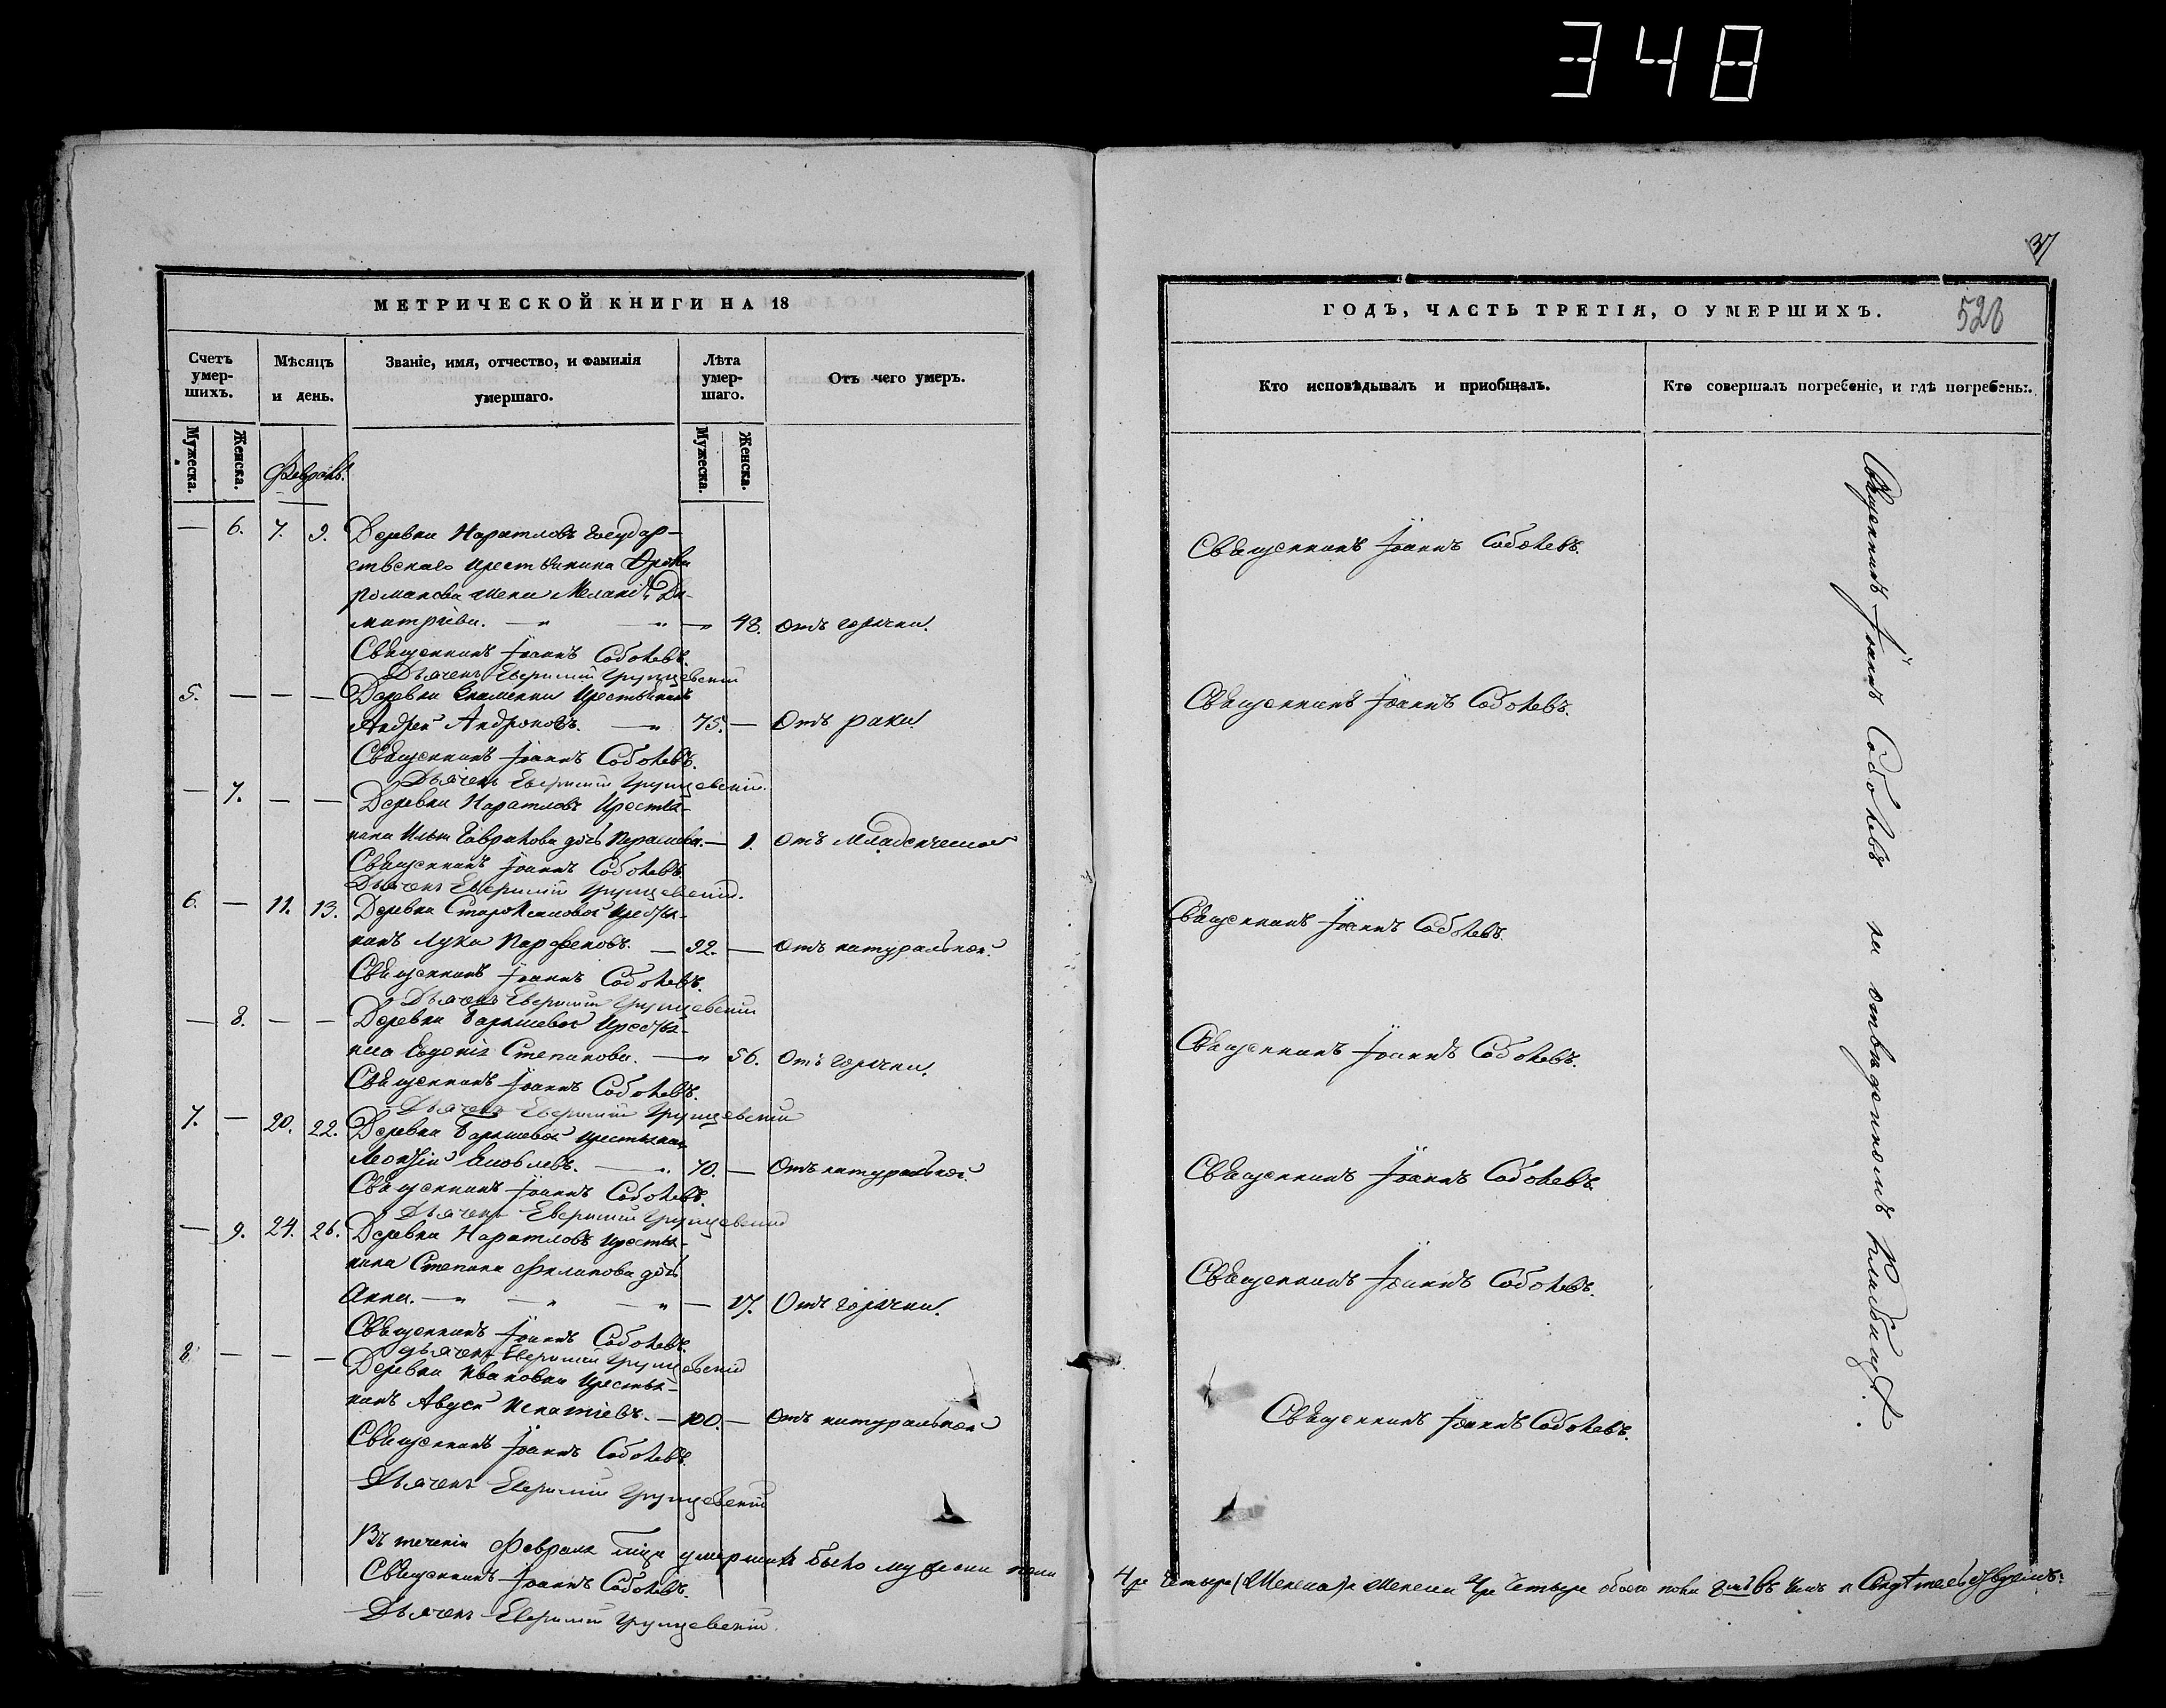 348
37
МЕТРИЧЕСКОЙ КНИГИ НА 18
Счетъ умер-шихъ.
Мужеска.
Женска.
Мѣсяцъ и день.
Званіе, имя, отчество, и фамилія умершаго.
Лѣта умер-шаго.
Мужеска.
Женска.
Отъ чего умеръ.
Февраль.
— 6. 7. 9. Деревни Каратловъ государ-
ственаго крестьянина
Романова жена Меланія Ди-
митріева. — 48. отъ горячки.
Священникъ Іоаннъ Соболевъ.
Дьячекъ Евфимій
5. — — — Деревни Знаменки крестьянинъ
Андрей Андроновъ. — 75. — Отъ раки
Священникъ Іоаннъ Соболевъ.
Дьячекъ Евфимій
— 7. — — Деревни Каратловъ крестья-
нина Ильи Гаврилова дочь Параскева. — 1. Отъ младенческой
Священникъ Іоаннъ Соболевъ.
Дьячекъ Евфимій
6. — 11. 13. Деревни крестья-
нинъ Лука Парфеновъ. — 92. — Отъ натуральной.
Священникъ Іоаннъ Соболевъ.
Дьячекъ Евфимій
— 8. — — Деревни Барышевой крестья-
нка Евдокія Степанова. — 56. Отъ горячки.
Священникъ Іоаннъ Соболевъ.
Дьячекъ Евфимій
7. — 20. 22. Деревни Барышевой крестьянинъ
Леонтій Яковлевъ. — 70. — Отъ натуральной.
Священникъ Іоаннъ Соболевъ.
Дьячекъ Евфимій
— 9. 24. 26. Деревни Каратловъ крестья-
нина Степана Филипова дочь
Анна. — 17. Отъ горячки.
Священникъ Іоаннъ Соболевъ.
Дьячекъ Евфимій
8. — — — Деревни Ивановки крестья-
нинъ Игнатіевъ. — 100. — Отъ натуральной
Священникъ Іоаннъ Соболевъ.
Дьячекъ Евфимій
Въ теченіи Февраля м-ца умершихъ было мужеска пола
Священникъ Іоаннъ Соболевъ.
Дьячекъ Евфимій
ГОДЪ, ЧАСТЬ ТРЕТІЯ, О УМЕРШИХЪ.
528
Кто исповѣдывалъ и пріобщалъ.
Кто совершалъ погребеніе, и гдѣ погребены.
Священникъ Іоаннъ Соболевъ.
Священникъ Іоаннъ Соболевъ.
Священникъ Іоаннъ Соболевъ.
Священникъ Іоаннъ Соболевъ.
Священникъ Іоаннъ Соболевъ.
Священникъ Іоаннъ Соболевъ.
Священникъ Іоаннъ Соболевъ.
Священникъ Іоаннъ Соболевъ на отведенномъ кладбищѣ.
4ре четыре (женска) женска 4ре четыре обоего пола въ чемъ и свидѣтельствуемъ.